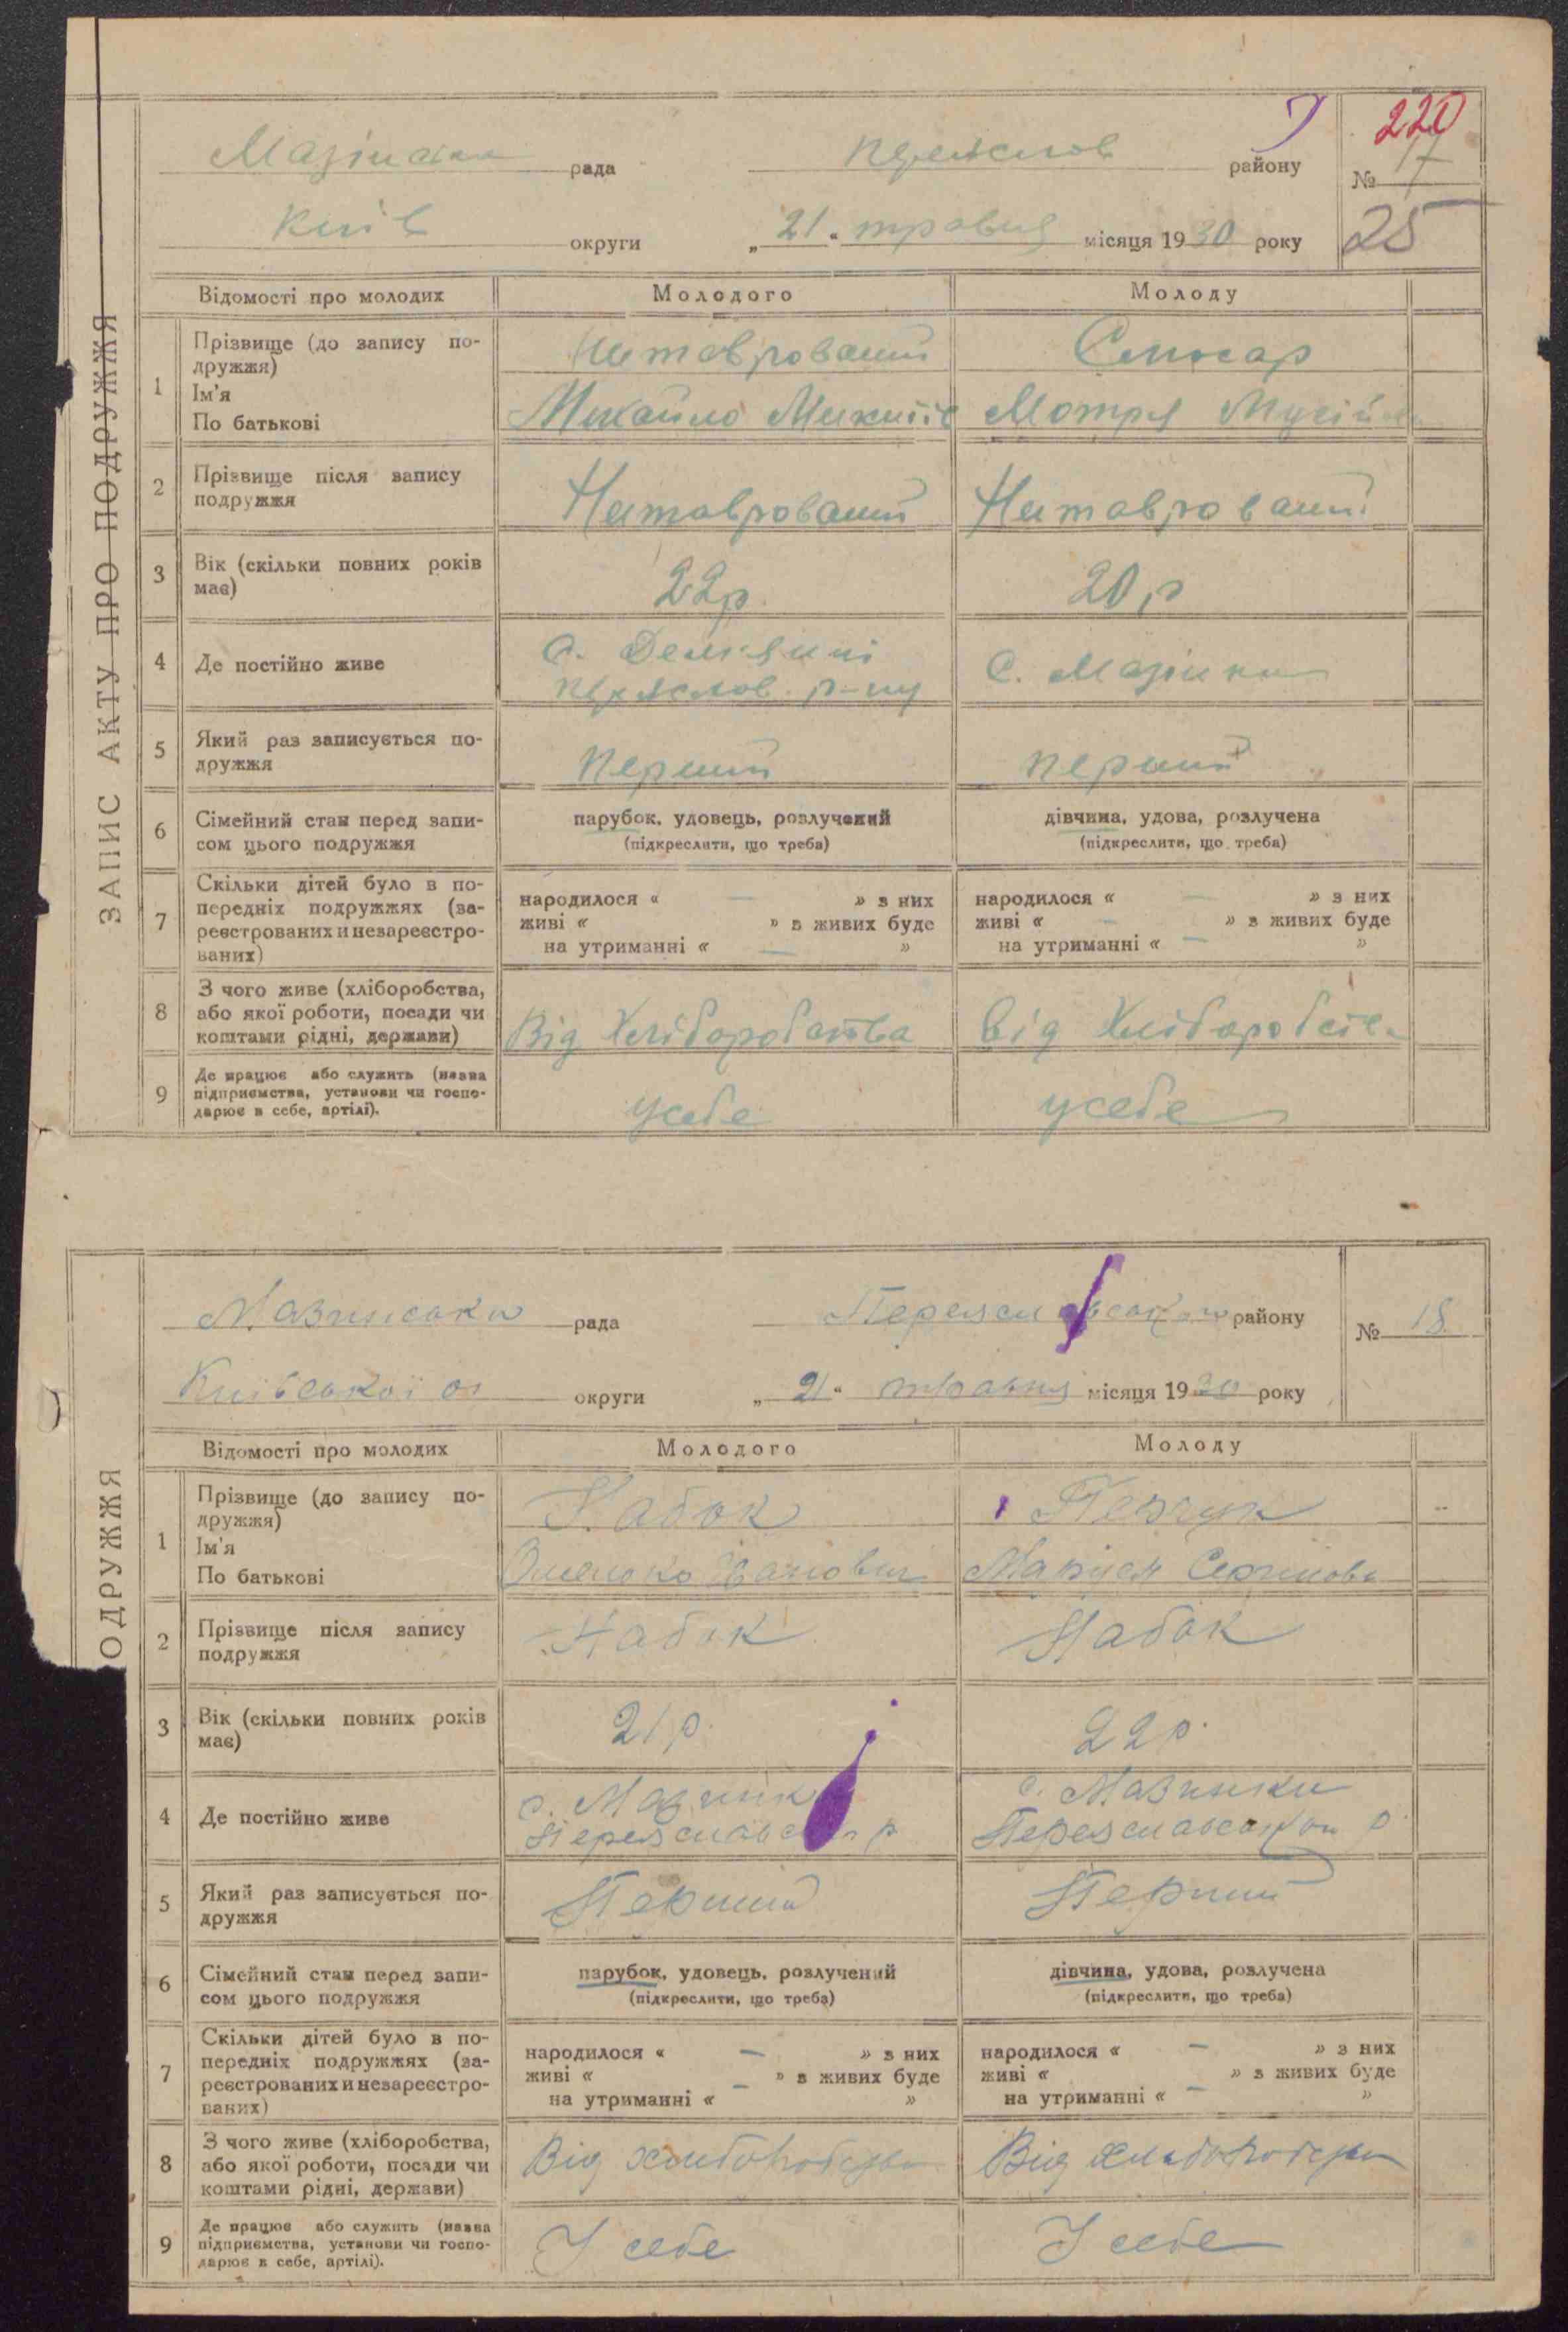 220
Мазінська рада Переяслов району № 17
Київ округи „ 21 “ травня місяця 1930 року 25
ЗАПИС АКТУ ПРО ПОДРУЖЖЯ
Відомості про молодих Молодого Молоду
1 Прізвище (до запису по-
дружжя) Нетаврований Слюсар
Ім'я
По батькові Михайло Микитів Мотря Мусійов
2 Прізвище після запису
подружжя Нетаврований Нетаврований
3 Вік (скільки повних років
має) 22р. 20р
4 Де постійно живе с. Демьянці
Переяслов. р-ну с. Мазінки
5 Який раз записується по-
дружжя Перший перший
6 Сімейний стан перед запи-
сом цього подружжя парубок, удовець, розлучений дівчина, удова, розлучена
(підкреслити, що треба) (підкреслити, що треба)
7 Скільки дітей було в по-
передніх подружжях (за-
реєстрованих и незареєстро-
ваних)
народилося « — » з них народилося « — » з них
живі « » в живих буде живі « — » з живих буде
на утриманні « — » на утриманні « — »
8 З чого живе (хліборобства,
або якої роботи, посади чи
коштами рідні, держави) Від Хліборобства Від Хліборобств
9 Де працює або служить (назва
підприємства, установи чи госпо-
дарює в себе, артілі). усебе усебе
Мазинська рада Переяславського району № 18
Київської ок округи „ 21 “ травня місяця 1930 року
ОДРУЖЖЯ
Відомості про молодих Молодого Молоду
1 Прізвище (до запису по-
дружжя) Набок
Ім'я
По батькові Іванович Маруся
2 Прізвище після запису
подружжя Набок Набок
3 Вік (скільки повних років
має) 21р. 22р.
4 Де постійно живе с. Мазинк с. Мазинки
Переяславс р Переяславського р
5 Який раз записується по-
дружжя Перший Перший
6 Сімейний стан перед запи-
сом цього подружжя парубок, удовець, розлучений дівчина, удова, розлучена
(підкреслити, що треба) (підкреслити, що треба)
7 Скільки дітей було в по-
передніх подружжях (за-
реєстрованих и незареєстро-
ваних)
народилося « — » з них народилося « — » з них
живі « » в живих буде живі « » з живих буде
на утриманні « — » на утриманні « — »
8 З чого живе (хліборобства,
або якої роботи, посади чи
коштами рідні, держави) Від Від
9 Де працює або служить (назва
підприємства, установи чи госпо-
дарює в себе, артілі). У себе У себе